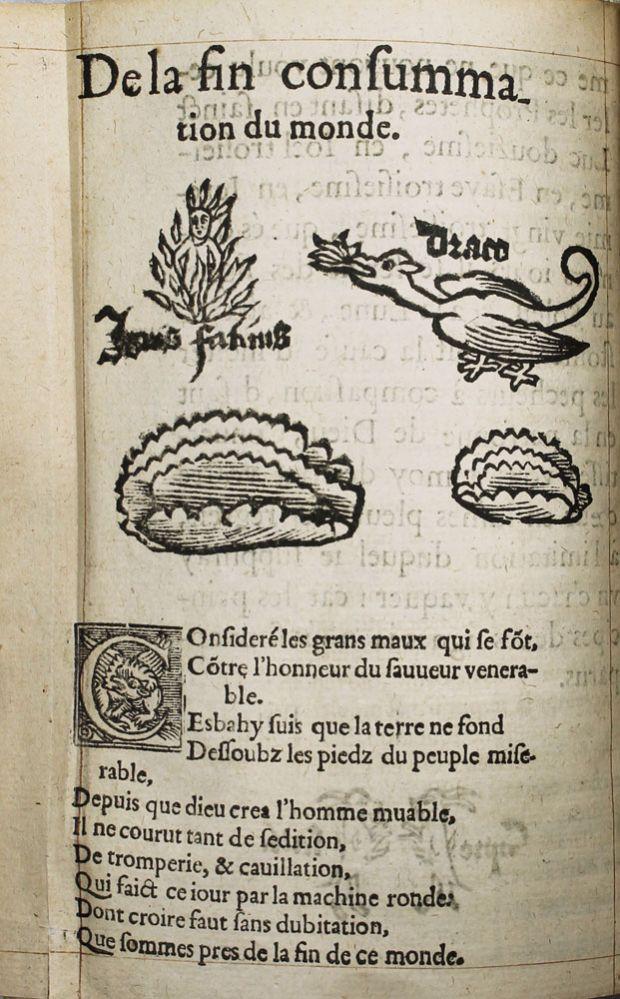 De la fin conſumma-
tion du monde.
Draco
Ignis fatuus
Conſideré les grans maux qui ſe fõt,
Cõtre l'honneur du ſauueur venera-
ble.
Esbahy ſuis que la terre ne fond
Deſſoubz les piedz du peuple miſe-
rable,
Depuis que dieu crea l'homme muable,
Il ne courut tant de ſedition,
De tromperie, & cauillation,
Qui faict ce iour par la machine ronde:
Dont croire faut ſans dubitation,
Que ſommes pres de la fin de ce monde.